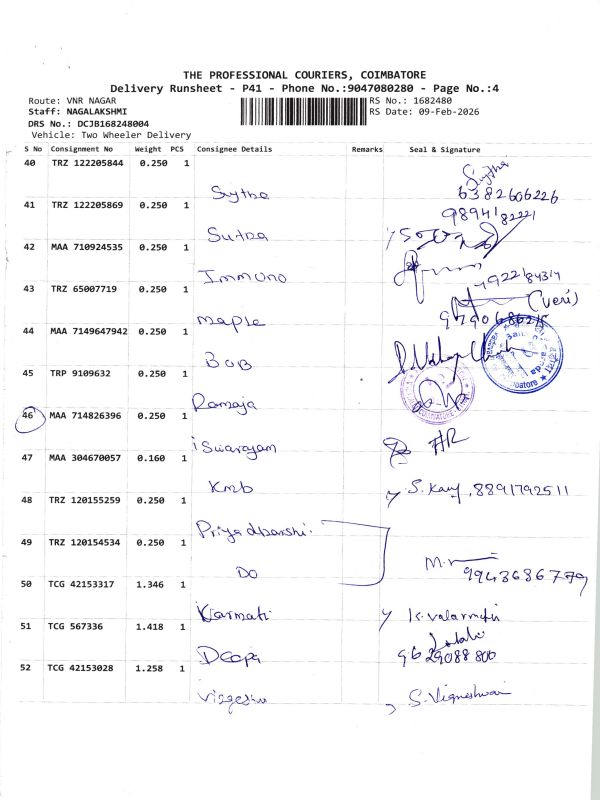 THE PROFESSIONAL COURIERS, COIMBATORE
Delivery Runsheet - P41 - Phone No.:9047080280 - Page No.:4
Route: VNR NAGAR RS No.: 1682480
Staff: NAGALAKSHMI RS Date: 09-Feb-2026
DRS No.: DCJB168248004
Vehicle: Two Wheeler Delivery
S No Consignment No Weight PCS Consignee Details Remarks Seal & Signature
40 TRZ 122205844 0.250 1
6382606226
41 TRZ 122205869 0.250 1
42 MAA 710924535 0.250 1
Immuno
43 TRZ 65007719 0.250 1
(Veri)
maple
44 MAA 7149647942 0.250 1
BOB
45 TRP 9109632 0.250 1
Ramaja
46 MAA 714826396 0.250 1
iswarayam HR
47 MAA 304670057 0.160 1
Kmb S. Kary, 8891792511
48 TRZ 120155259 0.250 1
Priyadharshi
49 TRZ 120154534 0.250 1
Do 9943686779
50 TCG 42153317 1.346 1
K. Valarmathi
51 TCG 567336 1.418 1
Deepa 9629088800
52 TCG 42153028 1.258 1
S. Vigneshwari